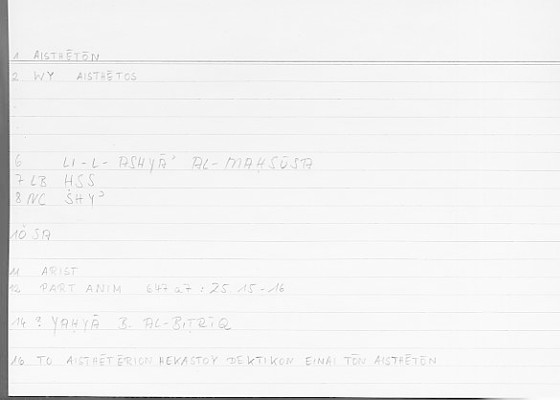 1 AISTHĒTŌN
2 WY AISTHĒTOS
6 LI-L-ASHYĀʾ AL-MAḤSŪSA
7 LB ḤSS
8 NC ŠHYʾ
10 SA
11 ARIST
12 PART ANIM 647 a7 : 25 15-16
14 ? YAḤYĀ B. AL-BIṬRĪQ
16 TO AISTHĒTĒRION HEKASTOY DEKTIKON EINAI TŌN AISTHĒTŌN